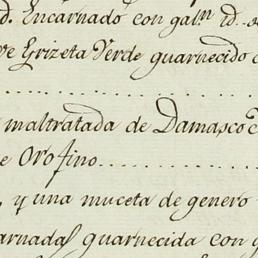 d. Encarnado con galⁿ id.
Grizeta Verde guarnecido
maltratada de Damasco
e Oro fino
, y una muceta de genero
arnada guarnecida con